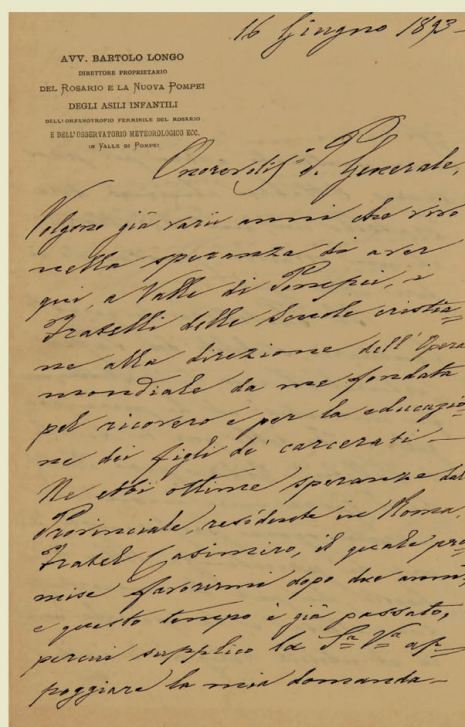 16 Giugno 1893
AVV. BARTOLO LONGO
DIRETTORE PROPRIETARIO
DEL ROSARIO E LA NUOVA POMPEI
DEGLI ASILI INFANTILI
DELL'ORFANOTROFIO FEMMINILE DEL ROSARIO
E DELL'OSSERVATORIO METEOROLOGICO ECC.
IN VALLE DI POMPEI
Generale,
Volgono già varii anni che vivo
nella speranza di aver
qui, a Valle di Pompei, i
Fratelli delle Scuole cristia-
ne alla direzione dell'Opera
mondiale da me fondata
pel ricovero e per la educazio-
ne dei figli de' carcerati —
Ne ebbi ottime speranze dal
Provinciale, residente in Roma,
Fratel Casimiro, il quale pro-
mise favorirmi dopo due anni,
e questo tempo è già passato,
perciò supplico la S.ª V.ª ap-
poggiare la mia domanda —